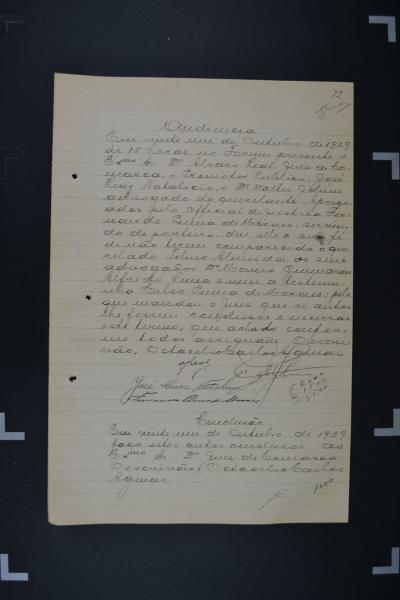 72
Audiencia
Em vinte um de Outubro de 1929
ás 15 horas no Forum presente o
Exmo Sr. Dr. Alvaro Leal Juiz da Co-
marca, o Promotor Publico, José
Luiz Natalicio, o Dr. Walter
advogado do querelante. Aprego-
ados pelo official de justiça Fer-
nando Buena de Moraes, servin-
do de porteiro deu elle a sua fé
de não terem comparecido o que-
relado Telmo Almeida, os seus
advogados Dr. Mauro Guimarães
Alfredo Lima e nem a testemu-
nha Celso Buena de Moraes; pelo
que mandou o Juiz que os autos
lhe fossem conclusos e encerrar
este termo, que achado confor-
me todos assignam. O escri-
vão, Octacilio Carlos Aguiar
José Luiz Natalicio
Fernando Buena Moraes
Conclusão
Em vinte um de Outubro de 1929
faço estes autos conclusos ao
Exmo Sr. Dr. Juiz de Comarca
O escrivão, Octacilio Carlos
Aguiar
1000